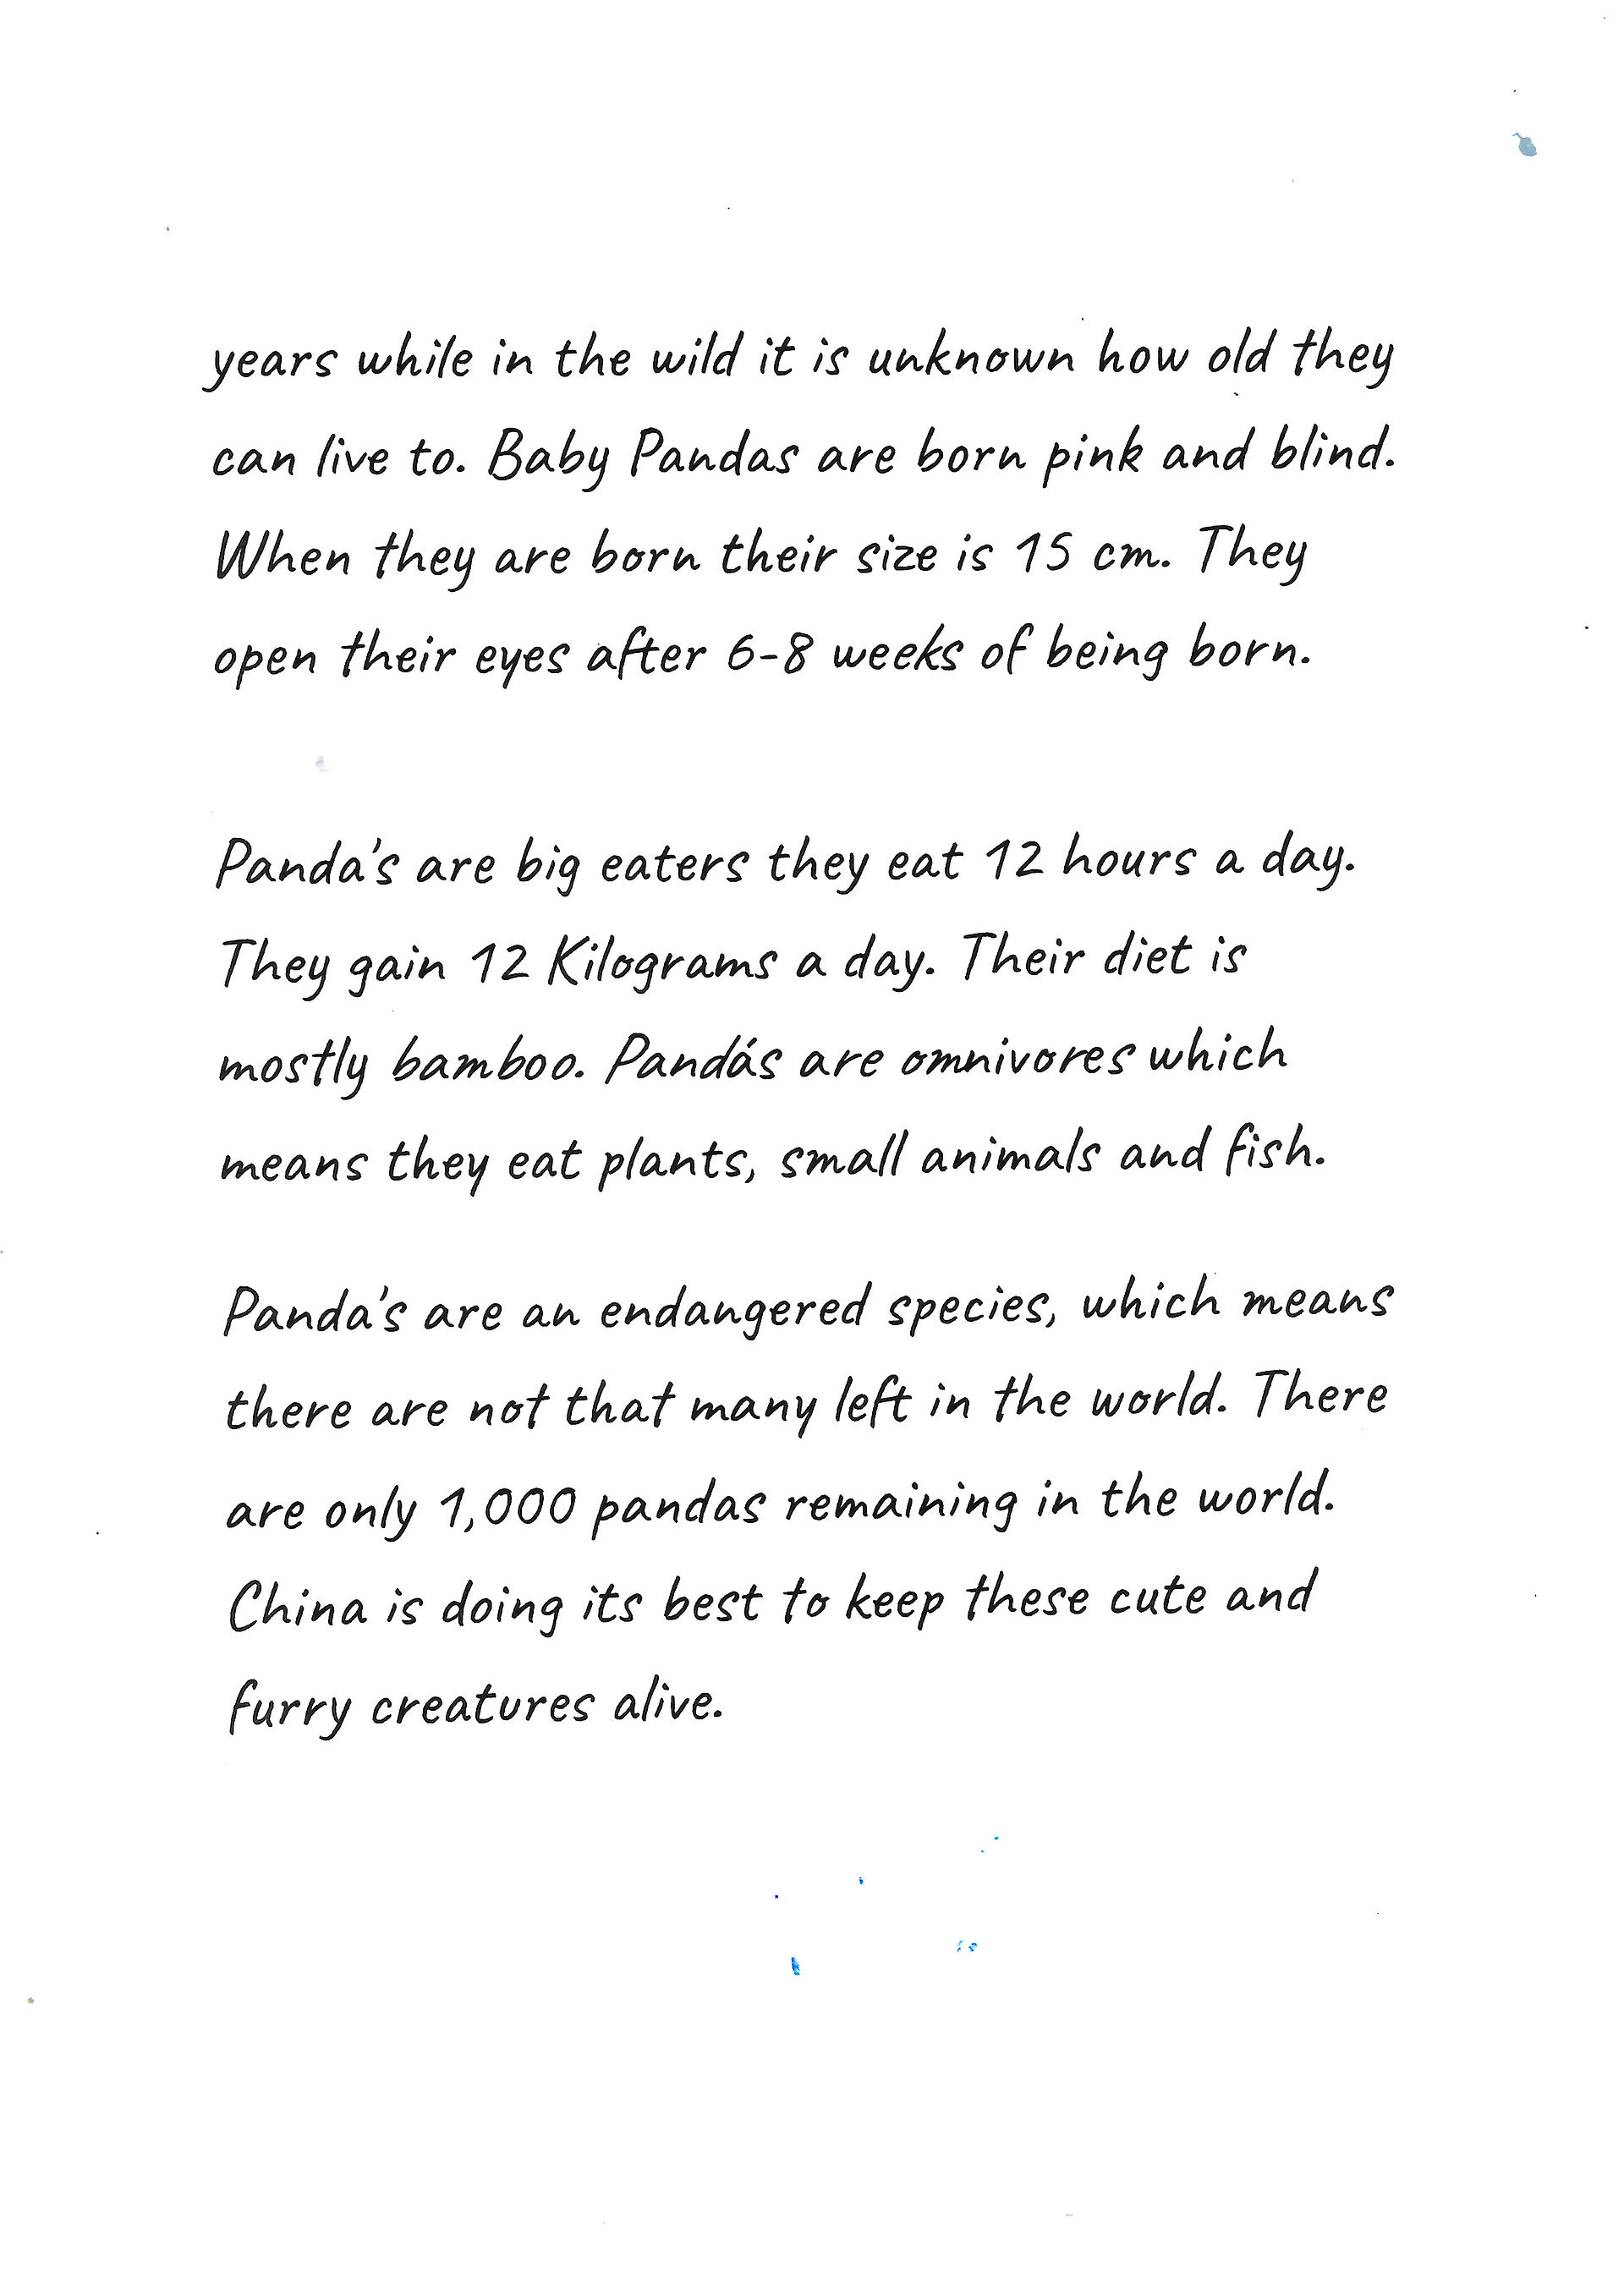 years while in the wild it is unknown how old they
can live to. Baby Pandas are born pink and blind.
When they are born their size is 15 cm. They
open their eyes after 6-8 weeks of being born.
Panda's are big eaters they eat 12 hours a day.
They gain 12 Kilograms a day. Their diet is
mostly bamboo. Pandás are omnivores which
means they eat plants, small animals and fish.
Panda's are an endangered species, which means
there are not that many left in the world. There
are only 1,000 pandas remaining in the world.
China is doing its best to keep these cute and
furry creatures alive.